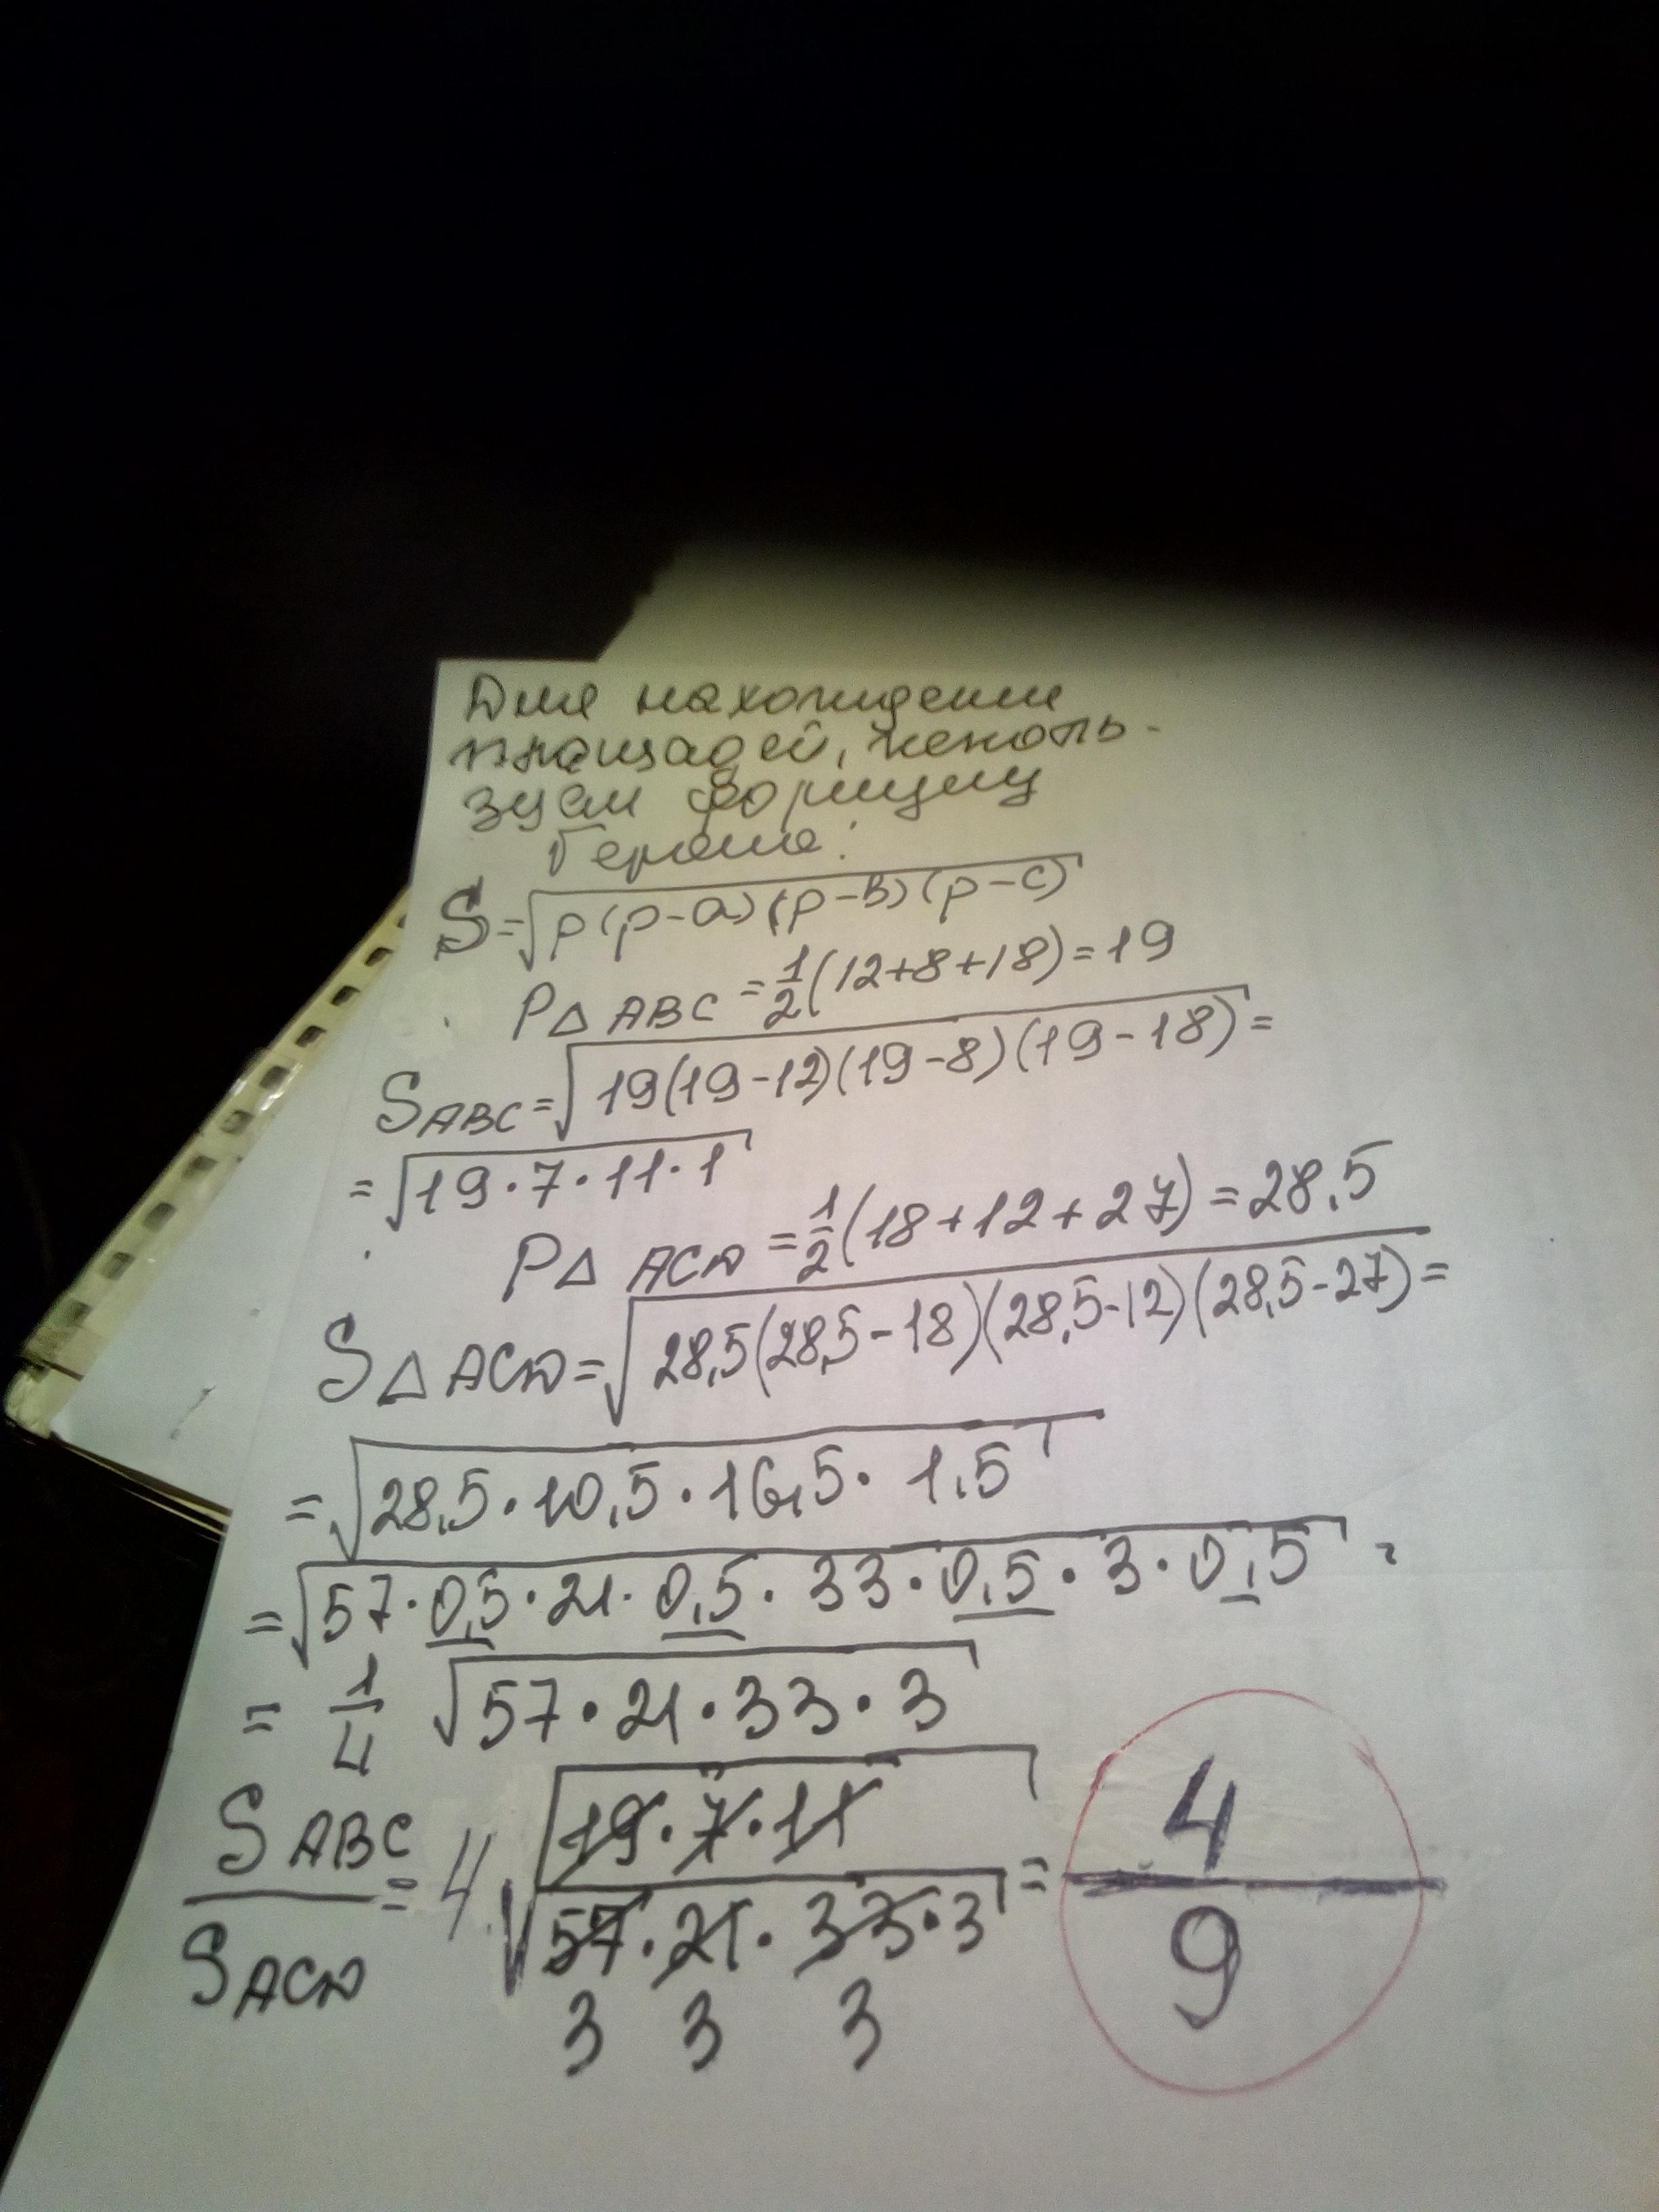 Для нахождения
площадей, исполь-
зуем формулу
Герона:
S=√p(p-a)(p-b)(p-c)
P△ ABC = 1/2(12+8+18)=19
SABC=√19(19-12)(19-8)(19-18)=
=√19·7·11·1
P△ ACD = 1/2(18+12+27)=28,5
S△ ACD=√28,5(28,5-18)(28,5-12)(28,5-27)=
=√28,5·10,5·16,5·1,5
=√57·0,5·21·0,5·33·0,5·3·0,5 =
= 1/4 √57·21·33·3
SABC/SACD = 4√19·7·11/57·21·33·3 = 4/9
3 3 3